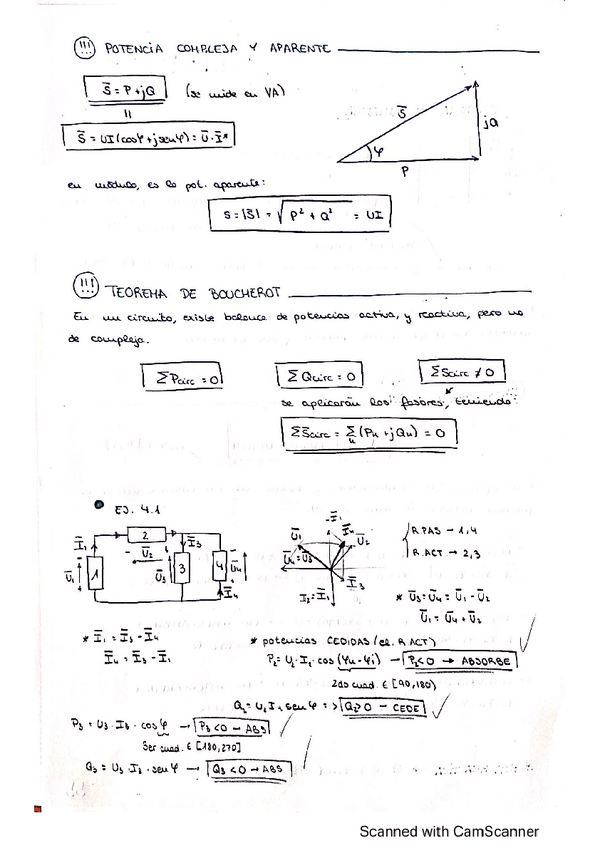 (!!!) POTENCIA COMPLEJA Y APARENTE
S̅ = P + jQ (se mide en VA)
=
S̅ = UI (cosφ + jsenφ) = U̅ · I̅*
S̅
jQ
φ
P
en módulo, es la pot. aparente:
S = |S̅| = √P² + Q² = UI
(!!!) TEOREMA DE BOUCHEROT
En un circuito, existe balance de potencias activa, y reactiva, pero no
de compleja.
ΣPcirc = 0 ΣQcirc = 0 ΣScirc ≠ 0
se aplicarán los fasores, teniendo
ΣS̅circ = Σ (Pk + jQk) = 0
k
• EJ. 4.1
I̅1 2 I̅3
U̅2
U̅1 1 U̅3 3 4 U̅4
I̅4
-I̅1 I̅4
U̅1 U̅2
U̅4=U̅3
I̅3
I̅2=I̅1
R.PAS → 1,4
R.ACT → 2,3
* U̅3=U̅4 = U̅1 - U̅2
U̅1 = U̅4 + U̅2
* I̅1 = I̅3 - I̅4
I̅4 = I̅3 - I̅1
* potencias CEDIDAS (el. R.ACT)
P2 = U2 · I2 · cos (φu - φi) → P2<0 → ABSORBE
2do cuad. ∈ [90,180)
Q2 = U2 I2 senφ => Q2>0 - CEDE
P3 = U3 · I3 · cosφ → P3<0 - ABS
3er cuad. ∈ [180,270]
Q3 = U3 I3 · senφ → Q3<0 → ABS
Scanned with CamScanner